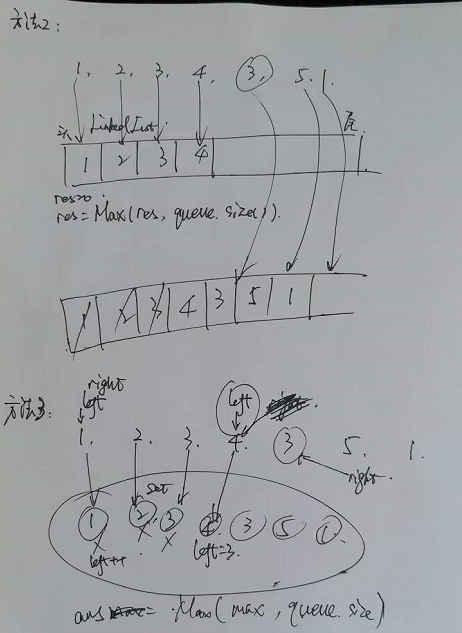 方法2:
1, 2, 3, 4, 3, 5, 1.
LinkedList.
1 2 3 4
res=0.
res=Max(res, queue.size()).
1 2 3 4 3 5 1
方法3:
right
left left
1. 2. 3. 4. 3 5. 1.
right.
set
1 2 3 4 3 5 1
left++ left=3.
ans = Max(max, queue.size)